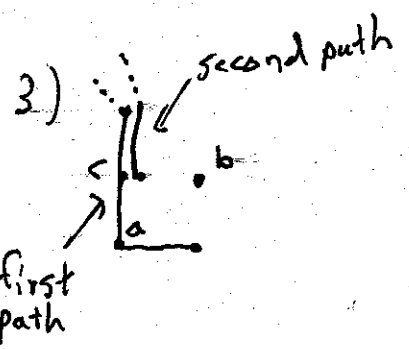 3)
second path
c
b
a
first
path